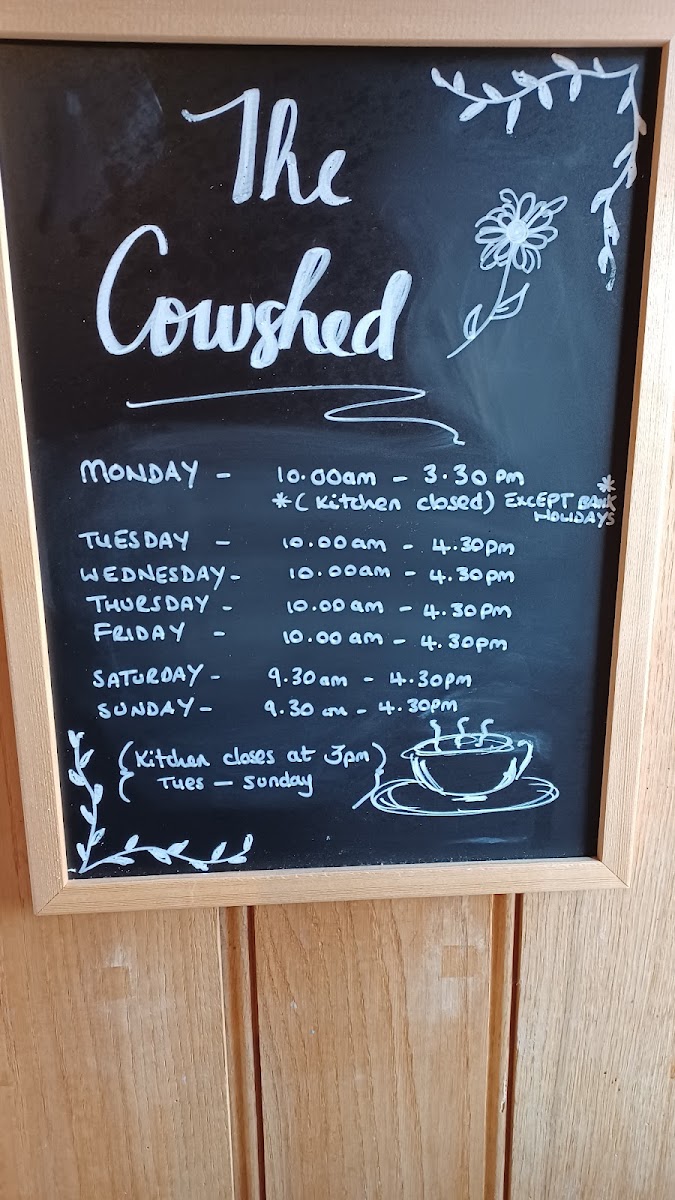 The
Cowshed
MONDAY - 10.00am - 3.30pm
*(Kitchen closed) EXCEPT BANK HOLIDAYS *
TUESDAY - 10.00am - 4.30pm
WEDNESDAY - 10.00am - 4.30pm
THURSDAY - 10.00am - 4.30pm
FRIDAY - 10.00am - 4.30pm
SATURDAY - 9.30am - 4.30pm
SUNDAY - 9.30am - 4.30pm
(Kitchen closes at 3pm)
Tues - Sunday